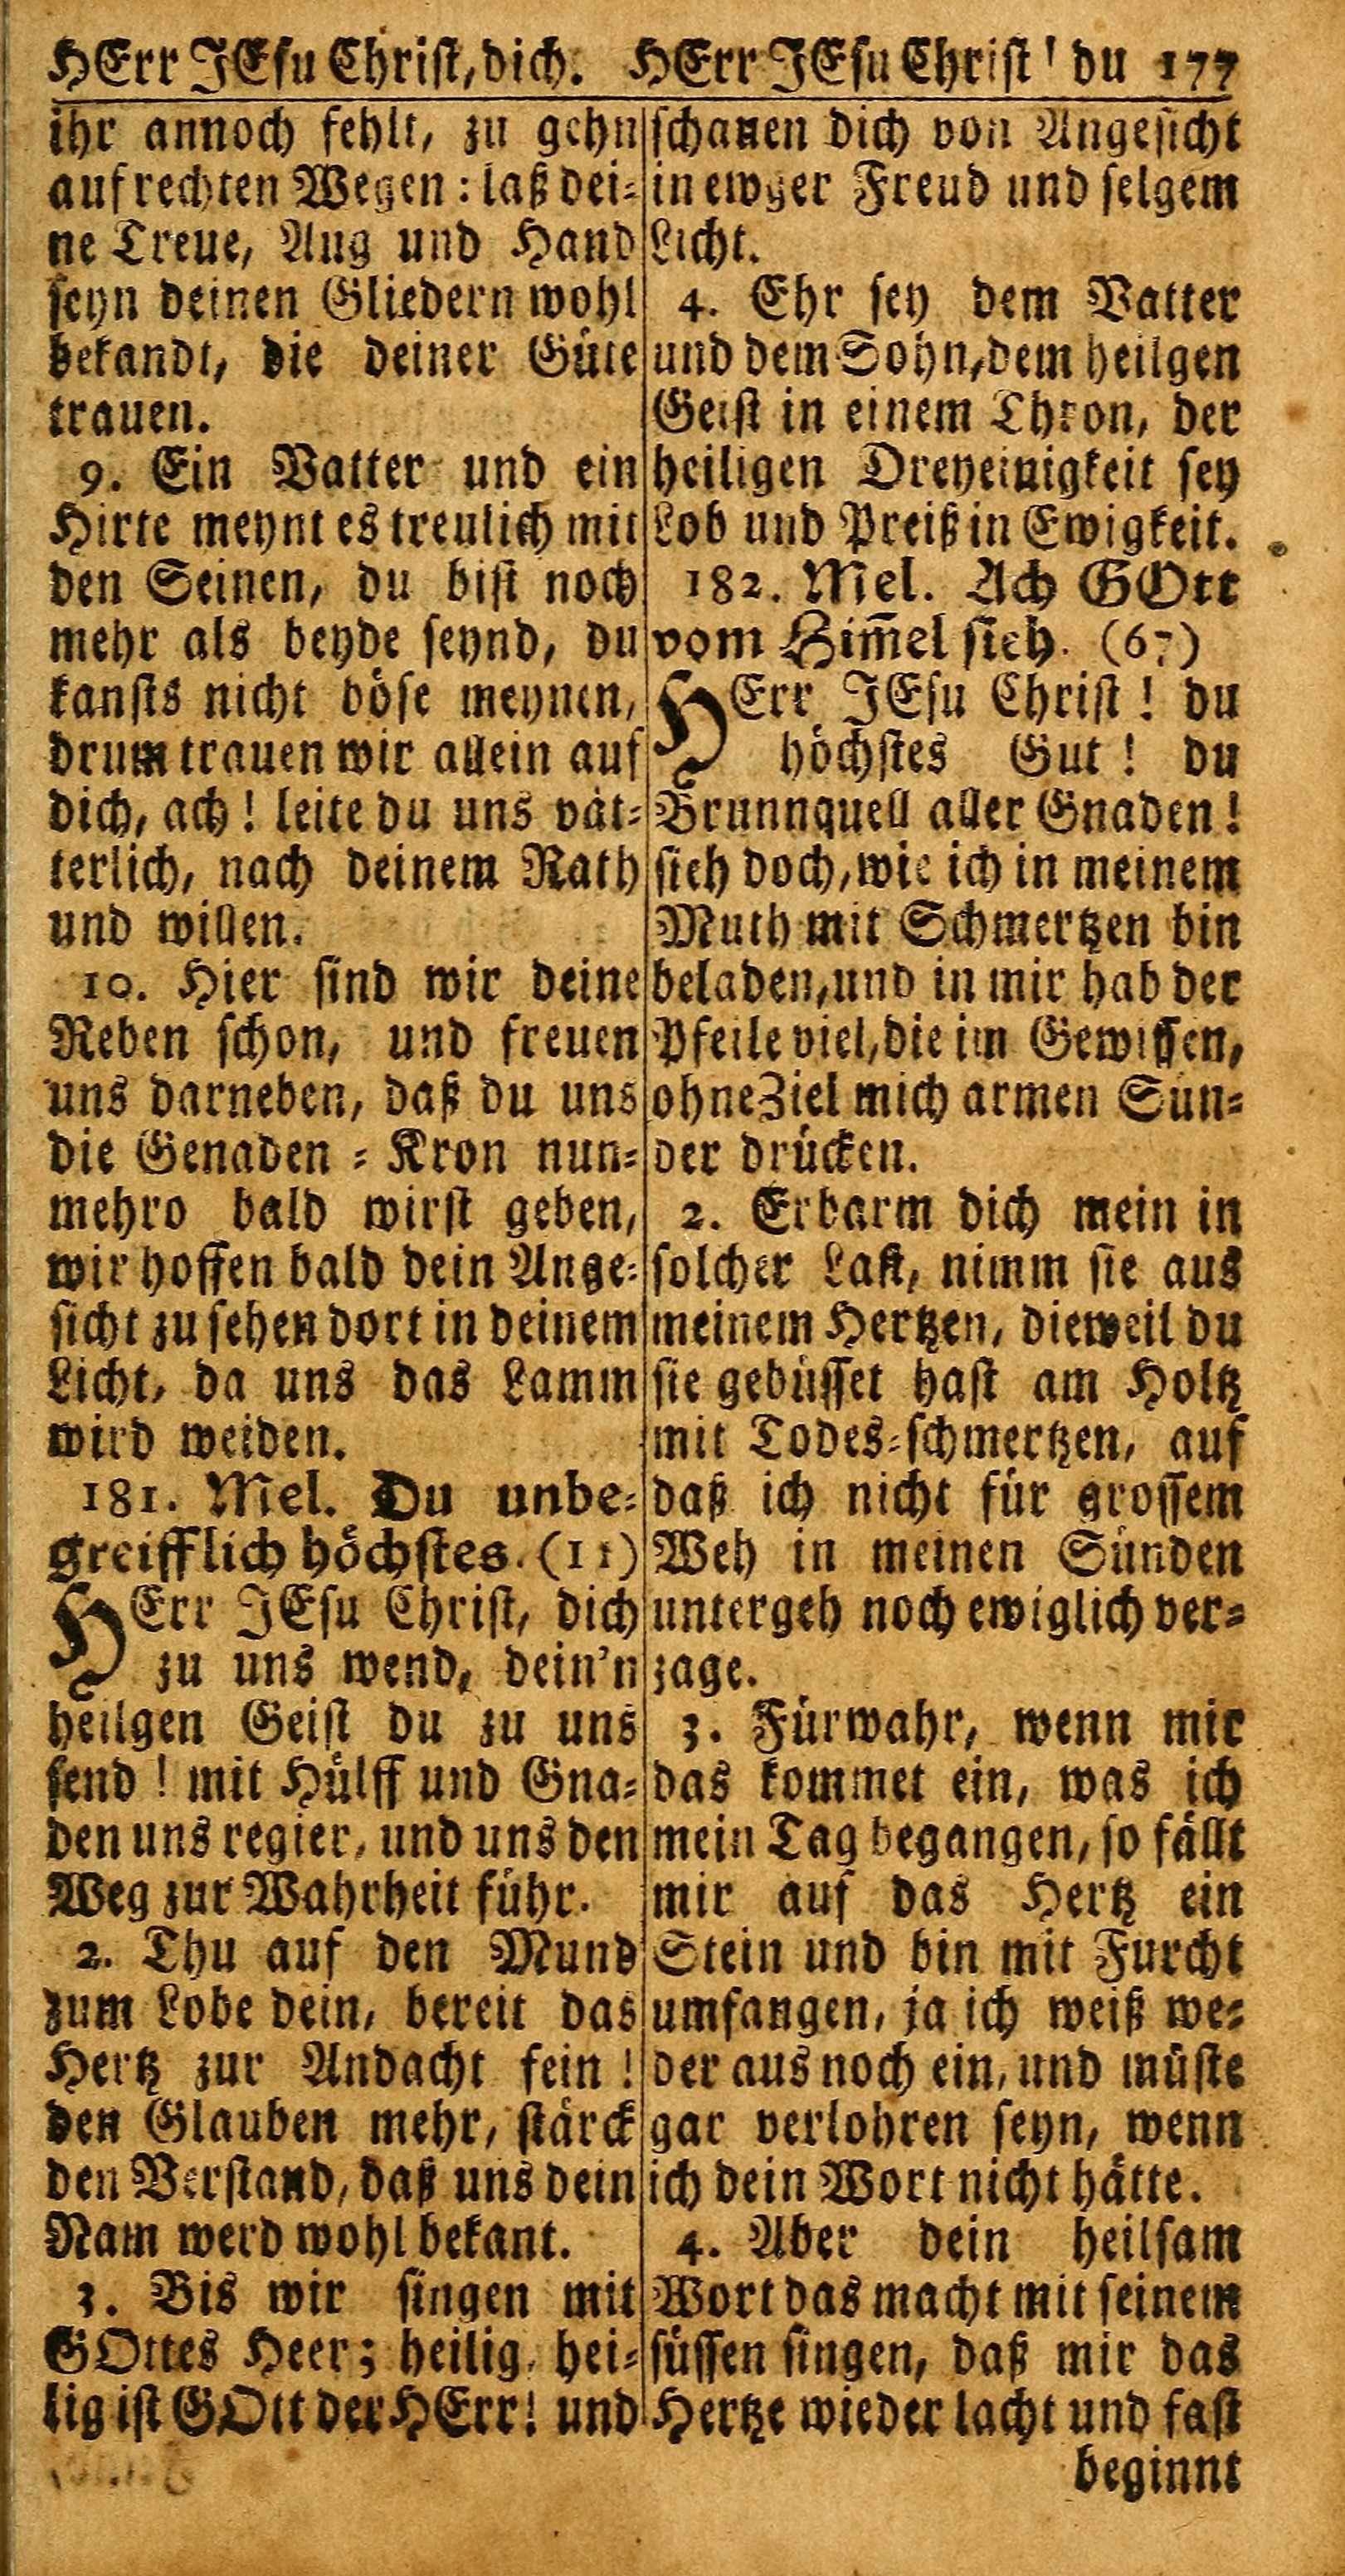 HErr JEsu Christ, dich. HErr JEsu Christ! du 177
ihr annoch fehlt, zu gehn
auf rechten Wegen: laß dei-
ne Treue, Aug und Hand
seyn deinen Gliedern wohl
bekandt, die deiner Güte
trauen.
9. Ein Vatter und ein
Hirte meynt es treulich mit
den Seinen, du bist noch
mehr als beyde seynd, du
kansts nicht böse meynen,
drum trauen wir allein auf
dich, ach! leite du uns vät-
terlich, nach deinem Rath
und willen.
10. Hier sind wir deine
Reben schon, und freuen
uns darneben, daß du uns
die Genaden-Kron nun-
mehro bald wirst geben,
wir hoffen bald dein Ange-
sicht zu sehen dort in deinem
Licht, da uns das Lamm
wird weiden.
181. Mel. Du unbe-
greifflich höchstes. (11)
HErr JEsu Christ, dich
zu uns wend, dein'n
heilgen Geist du zu uns
send! mit Hülff und Gna-
den uns regier, und uns den
Weg zur Wahrheit führ.
2. Thu auf den Mund
zum Lobe dein, bereit das
Hertz zur Andacht fein!
den Glauben mehr, stärck
den Verstand, daß uns dein
Nam werd wohl bekant.
3. Bis wir singen mit
GOttes Heer; heilig, hei-
lig ist GOtt der HErr! und
schauen dich von Angesicht
in ewger Freud und selgem
Licht.
4. Ehr sey dem Vatter
und dem Sohn, dem heilgen
Geist in einem Thron, der
heiligen Dreyeinigkeit sey
Lob und Preiß in Ewigkeit.
182. Mel. Ach GOtt
vom Him̅el sieh. (67)
HErr JEsu Christ! du
höchstes Gut! du
Brunnquell aller Gnaden!
sieh doch, wie ich in meinem
Muth mit Schmertzen bin
beladen, und in mir hab der
Pfeile viel, die im Gewissen,
ohne Ziel mich armen Sün-
der drücken.
2. Erbarm dich mein in
solcher Last, nimm sie aus
meinem Hertzen, dieweil du
sie gebüsset hast am Holtz
mit Todes-schmertzen, auf
daß ich nicht für grossem
Weh in meinen Sünden
untergeh noch ewiglich ver-
zage.
3. Fürwahr, wenn mir
das kommet ein, was ich
mein Tag begangen, so fällt
mir auf das Hertz ein
Stein und bin mit Furcht
umfangen, ja ich weiß we-
der aus noch ein, und müste
gar verlohren seyn, wenn
ich dein Wort nicht hätte.
4. Aber dein heilsam
Wort das macht mit seinem
süssen singen, daß mir das
Hertze wieder lacht und fast
beginnt